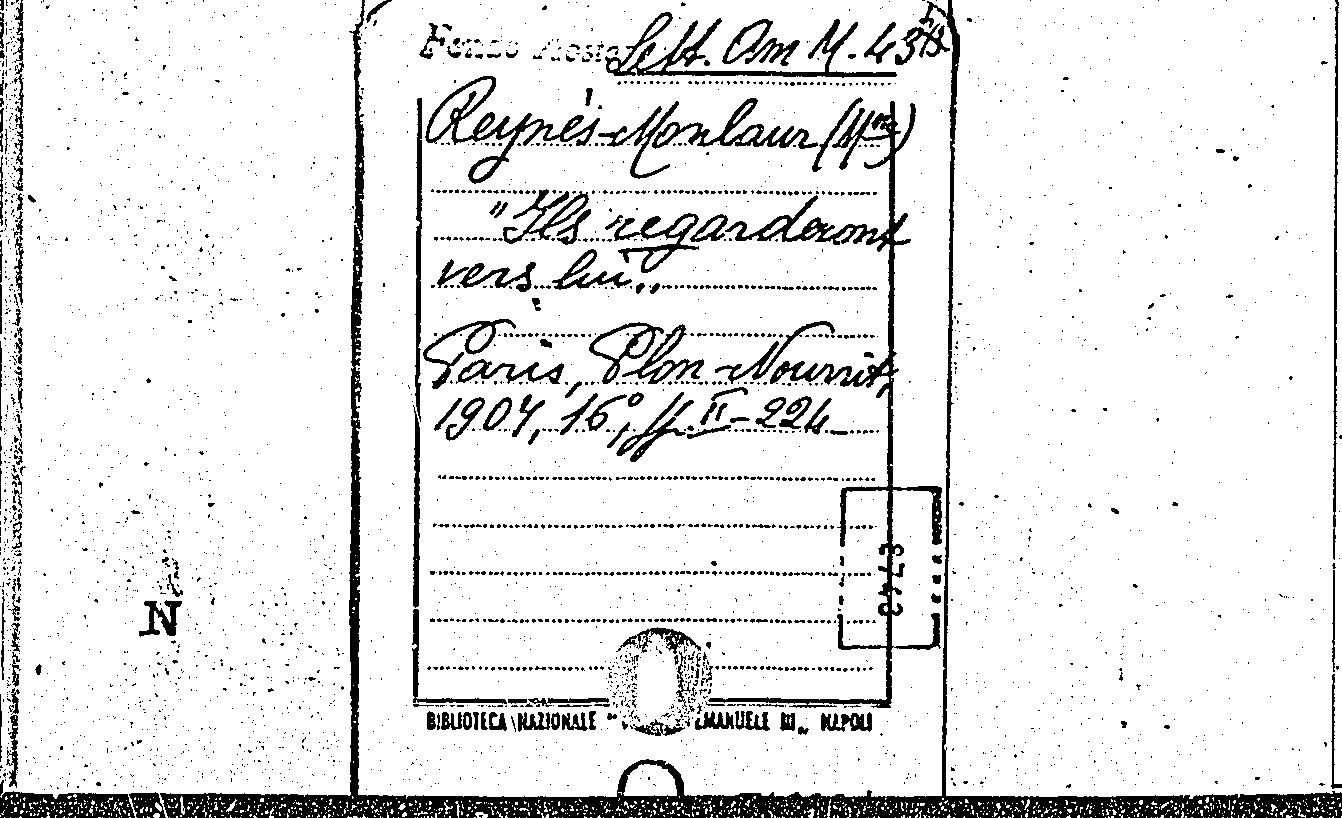 Fondo Sett. Am M. 43
Reynés-Monlaur (M.me)
"Ils regarderont
vers lui„
Paris, Plon-Nourrit,
1907, 16°, pp. II-224
N
BIBLIOTECA NAZIONALE " EMANUELE III„ NAPOLI